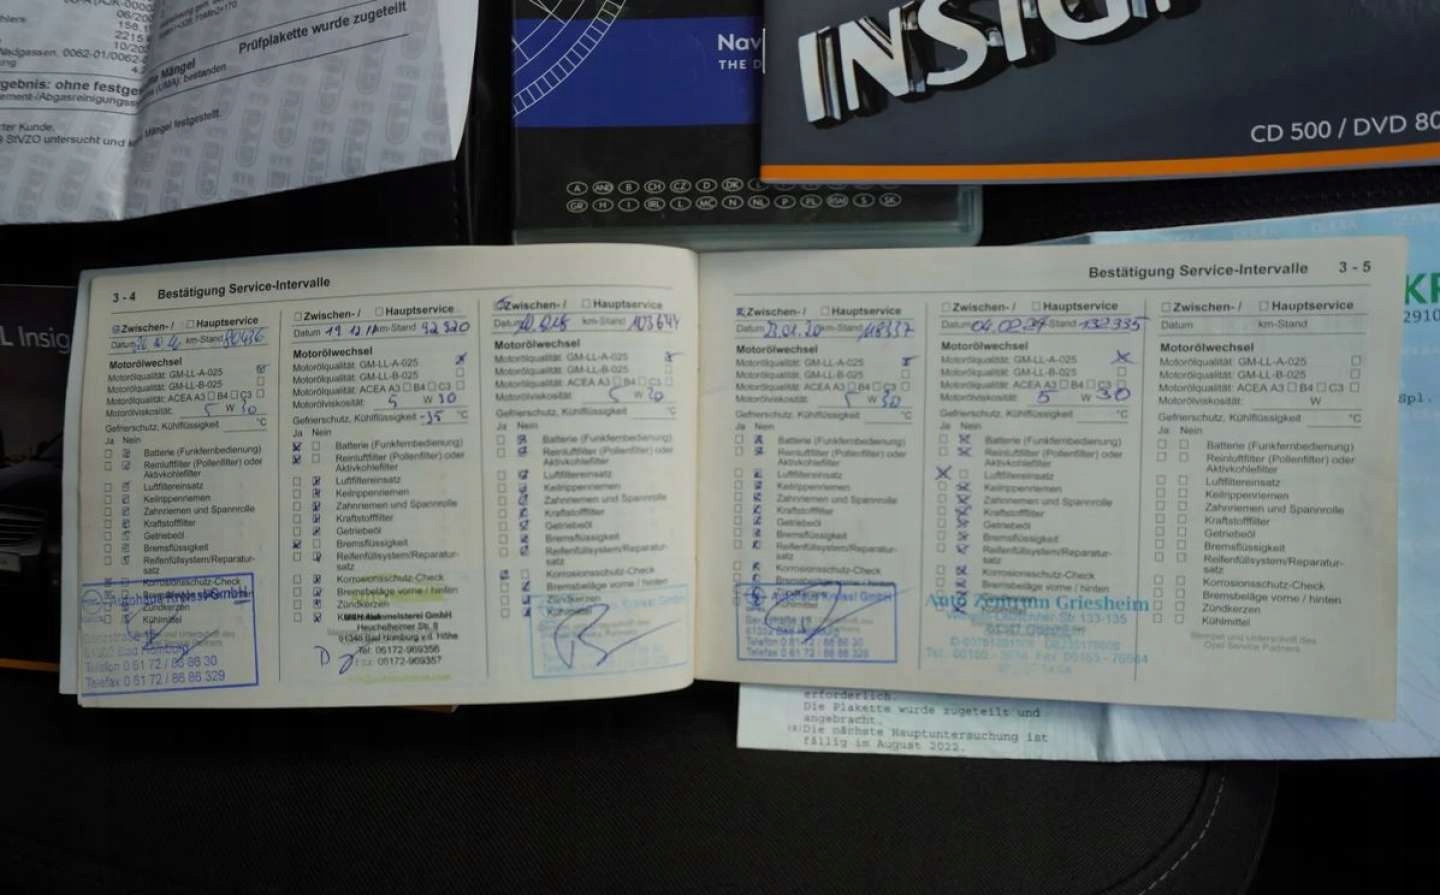 Prüfplakette wurde zugeteilt
Mängel
(UMA). bestanden
ergebnis: ohne festge
Mängel festgestellt.
rter Kunde.
StVZO untersucht und
GTÜ
Nav
THE D
A AND B CH CZ D DK
GR H I IRL L MC N NL P PL RSM S SK
INSIG
CD 500 / DVD 80
L Insig
KF
2910
Spl.
3 - 4 Bestätigung Service-Intervalle
Zwischen- / Hauptservice
Datum km-Stand 80436
Motorölwechsel
Motorölqualität: GM-LL-A-025
Motorölqualität: GM-LL-B-025
Motorölqualität: ACEA A3 B4 C3
Motorölviskosität: 5 W 30
Gefrierschutz, Kühlflüssigkeit °C
Ja Nein
Batterie (Funkfernbedienung)
Reinluftfilter (Pollenfilter) oder
Aktivkohlefilter
Luftfiltereinsatz
Keilrippenriemen
Zahnriemen und Spannrolle
Kraftstofffilter
Getriebeöl
Bremsflüssigkeit
Reifenfüllsystem/Reparatur-
satz
Korrosionsschutz-Check
Autohaus Kressl GmbH
Zündkerzen
Kühlmittel
61352 Bad Homburg
Telefon 0 61 72 / 86 86 30
Telefax 0 61 72 / 86 86 329
Zwischen- / Hauptservice
Datum 19.12. km-Stand 92320
Motorölwechsel
Motorölqualität: GM-LL-A-025
Motorölqualität: GM-LL-B-025
Motorölqualität: ACEA A3 B4 C3
Motorölviskosität: 5 W 30
Gefrierschutz, Kühlflüssigkeit -35 °C
Ja Nein
Batterie (Funkfernbedienung)
Reinluftfilter (Pollenfilter) oder
Aktivkohlefilter
Luftfiltereinsatz
Keilrippenriemen
Zahnriemen und Spannrolle
Kraftstofffilter
Getriebeöl
Bremsflüssigkeit
Reifenfüllsystem/Reparatur-
satz
Korrosionsschutz-Check
Bremsbeläge vorne / hinten
Zündkerzen
Heuchelheimer Str. 8
61348 Bad Homburg v.d. Höhe
Tel: 06172-969356
06172-969357
Zwischen- / Hauptservice
Datum km-Stand 103644
Motorölwechsel
Motorölqualität: GM-LL-A-025
Motorölqualität: GM-LL-B-025
Motorölqualität: ACEA A3 B4 C3
Motorölviskosität: 5 W 30
Gefrierschutz, Kühlflüssigkeit °C
Ja Nein
Batterie (Funkfernbedienung)
Reinluftfilter (Pollenfilter) oder
Aktivkohlefilter
Luftfiltereinsatz
Keilrippenriemen
Zahnriemen und Spannrolle
Kraftstofffilter
Getriebeöl
Bremsflüssigkeit
Reifenfüllsystem/Reparatur-
satz
Korrosionsschutz-Check
Bremsbeläge vorne / hinten
Zündkerzen
Kühlmittel
Bestätigung Service-Intervalle 3 - 5
Zwischen- / Hauptservice
Datum 23.01.20 km-Stand 118337
Motorölwechsel
Motorölqualität: GM-LL-A-025
Motorölqualität: GM-LL-B-025
Motorölqualität: ACEA A3 B4 C3
Motorölviskosität: 5 W 30
Gefrierschutz, Kühlflüssigkeit °C
Ja Nein
Batterie (Funkfernbedienung)
Reinluftfilter (Pollenfilter) oder
Aktivkohlefilter
Luftfiltereinsatz
Keilrippenriemen
Zahnriemen und Spannrolle
Kraftstofffilter
Getriebeöl
Bremsflüssigkeit
Reifenfüllsystem/Reparatur-
satz
Korrosionsschutz-Check
Bremsbeläge vorne / hinten
Autohaus Kressl GmbH
Kühlmittel
61352 Bad Homburg
Telefon 0 61 72 / 86 86 30
Telefax 0 61 72 / 86 86 329
Zwischen- / Hauptservice
Datum 04.02.21 km-Stand 132335
Motorölwechsel
Motorölqualität: GM-LL-A-025
Motorölqualität: GM-LL-B-025
Motorölqualität: ACEA A3 B4 C3
Motorölviskosität: 5 W 30
Gefrierschutz, Kühlflüssigkeit °C
Ja Nein
Batterie (Funkfernbedienung)
Reinluftfilter (Pollenfilter) oder
Aktivkohlefilter
Luftfiltereinsatz
Keilrippenriemen
Zahnriemen und Spannrolle
Kraftstofffilter
Getriebeöl
Bremsflüssigkeit
Reifenfüllsystem/Reparatur-
satz
Korrosionsschutz-Check
Bremsbeläge vorne / hinten
Zündkerzen
Auto Zentrum Griesheim
Zwischen- / Hauptservice
Datum km-Stand
Motorölwechsel
Motorölqualität: GM-LL-A-025
Motorölqualität: GM-LL-B-025
Motorölqualität: ACEA A3 B4 C3
Motorölviskosität: W
Gefrierschutz, Kühlflüssigkeit °C
Ja Nein
Batterie (Funkfernbedienung)
Reinluftfilter (Pollenfilter) oder
Aktivkohlefilter
Luftfiltereinsatz
Keilrippenriemen
Zahnriemen und Spannrolle
Kraftstofffilter
Getriebeöl
Bremsflüssigkeit
Reifenfüllsystem/Reparatur-
satz
Korrosionsschutz-Check
Bremsbeläge vorne / hinten
Zündkerzen
Kühlmittel
Stempel und Unterschrift des
Opel Service Partners
erforderlich.
Die Plakette wurde zugeteilt und
angebracht.
(X)Die nächste Hauptuntersuchung ist
fällig im August 2022.